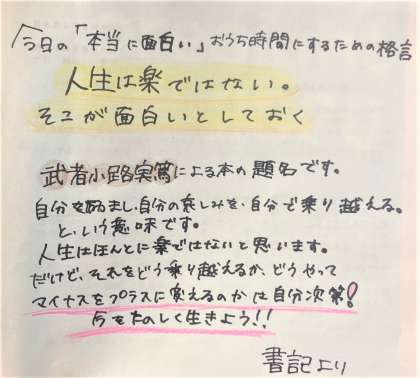 今日の「本当に面白い」おうち時間にするための格言
人生は楽ではない。
そこが面白いとしておく
武者小路実篤による本の題名です。
自分を励まし、自分の哀しみを、自分で乗り越える。
と、いう意味です。
人生はほんとに楽ではないと思います。
だけど、それをどう乗り越えるか、どうやって
マイナスをプラスに変えるのかは自分次第!
今をたのしく生きよう!!
書記より